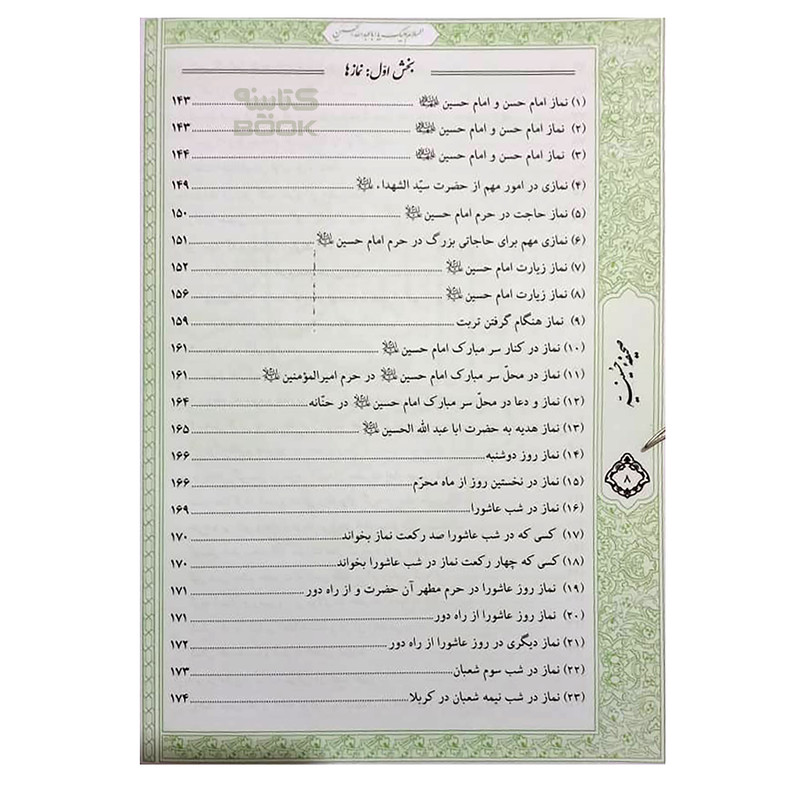 السلام علیک یا اباعبدالله الحسین
بخش اوّل: نمازها
کتابینو
BOOK
(۱) نماز امام حسن و امام حسین علیهماالسلام ........ ۱۴۳
(۲) نماز امام حسن و امام حسین علیهماالسلام ........ ۱۴۳
(۳) نماز امام حسن و امام حسین علیهماالسلام ........ ۱۴۴
(۴) نمازی در امور مهم از حضرت سیّد الشهداء علیه‌السلام ........ ۱۴۹
(۵) نماز حاجت در حرم امام حسین علیه‌السلام ........ ۱۵۰
(۶) نمازی مهم برای حاجاتی بزرگ در حرم امام حسین علیه‌السلام ........ ۱۵۱
(۷) نماز زیارت امام حسین علیه‌السلام ........ ۱۵۲
(۸) نماز زیارت امام حسین علیه‌السلام ........ ۱۵۶
(۹) نماز هنگام گرفتن تربت ........ ۱۵۹
(۱۰) نماز در کنار سر مبارک امام حسین علیه‌السلام ........ ۱۶۱
(۱۱) نماز در محلّ سر مبارک امام حسین علیه‌السلام در حرم امیرالمؤمنین علیه‌السلام ........ ۱۶۱
(۱۲) نماز و دعا در محلّ سر مبارک امام حسین علیه‌السلام در حنّانه ........ ۱۶۴
(۱۳) نماز هدیه به حضرت ابا عبد الله الحسین علیه‌السلام ........ ۱۶۵
(۱۴) نماز روز دوشنبه ........ ۱۶۶
(۱۵) نماز در نخستین روز از ماه محرّم ........ ۱۶۶
(۱۶) نماز در شب عاشورا ........ ۱۶۹
(۱۷) کسی که در شب عاشورا صد رکعت نماز بخواند ........ ۱۷۰
(۱۸) کسی که چهار رکعت نماز در شب عاشورا بخواند ........ ۱۷۰
(۱۹) نماز روز عاشورا در حرم مطهر آن حضرت و از راه دور ........ ۱۷۱
(۲۰) نماز روز عاشورا از راه دور ........ ۱۷۱
(۲۱) نماز دیگری در روز عاشورا از راه دور ........ ۱۷۲
(۲۲) نماز در شب سوم شعبان ........ ۱۷۳
(۲۳) نماز در شب نیمه شعبان در کربلا ........ ۱۷۴
صحیفه حسینیه
۸